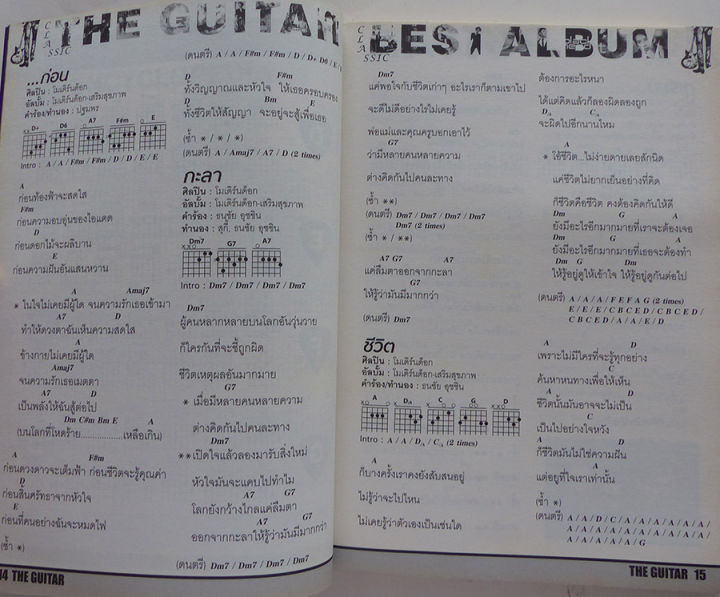 CLASSIC THE GUITAR
...ก่อน
ศิลปิน : โมเดิร์นด็อก
อัลบั้ม : โมเดิร์นด็อก-เสริมสุขภาพ
คำร้อง/ทำนอง : ปฐมพร
D+ D6 A7 F#m E
Intro : A / A / F#m / F#m / D / D / E / E
A
ก่อนท้องฟ้าจะสดใส
F#m
ก่อนความอบอุ่นของไอแดด
D
ก่อนดอกไม้จะผลิบาน
E
ก่อนความฝันอันแสนหวาน
A Amaj7
* ในใจไม่เคยมีผู้ใด จนความรักเธอเข้ามา
A7 D
ทำให้ดวงตาฉันเห็นความสดใส
A
ข้างกายไม่เคยมีผู้ใด
Amaj7
จนความรักเธอเมตตา
A7 D
เป็นพลังให้ฉันสู้ต่อไป
Dm C#m Bm E A
(บนโลกที่โหดร้าย...............เหลือเกิน)
A F#m
ก่อนดวงดาวจะเต็มฟ้า ก่อนชีวิตจะรู้คุณค่า
D
ก่อนสิ้นศรัทธาจากหัวใจ
E
ก่อนที่คนอย่างฉันจะหมดไฟ
(ซ้ำ *)
(ดนตรี) A / A / F#m / F#m / D / D+ D6 / E /
D F#m
ทั้งวิญญาณและหัวใจ ให้เธอครอบครอง
D Bm E
ทั้งชีวิตให้สัญญา จะอยู่จะสู้เพื่อเธอ
(ซ้ำ * / * / *)
(ดนตรี) A / Amaj7 / A7 / D (2 times)
กะลา
ศิลปิน : โมเดิร์นด็อก
อัลบั้ม : โมเดิร์นด็อก-เสริมสุขภาพ
คำร้อง : ธนชัย อุชชิน
ทำนอง : สุกี้, ธนชัย อุชชิน
Dm7 G7 A7
Intro : Dm7 / Dm7 / Dm7 / Dm7
Dm7
ผู้คนหลากหลายบนโลกอันวุ่นวาย
ก็ใครกันที่จะชี้ถูกผิด
ชีวิตเหตุผลอันมากมาย
G7
* เมื่อมีหลายคนหลายความ
ต่างคิดกันไปคนละทาง
Dm7
**เปิดใจแล้วลองมารับสิ่งใหม่
หัวใจมันจะแคบไปทำไม
A7 G7
โลกยังกว้างไกลแค่ลืมตา
A7 G7
ออกจากกะลาให้รู้ว่ามันมีมากกว่า
(ดนตรี) Dm7 / Dm7 / Dm7 / Dm7
14 THE GUITAR
CLASSIC BEST ALBUM
Dm7
แค่พอใจกับชีวิตเก่าๆ อะไรเราก็ตามเขาไป
จะดีไม่ดีอย่างไรไม่เคยรู้
พ่อแม่และคุณครูบอกเอาไว้
G7
ว่ามีหลายคนหลายความ
ต่างคิดกันไปคนละทาง
(ซ้ำ **)
(ดนตรี) Dm7 / Dm7 / Dm7 / Dm7
Dm7 (2 times)
(ซ้ำ * / **)
A7 G7 A7
แค่ลืมตาออกจากกะลา
G7
ให้รู้ว่ามันมีมากกว่า
(ดนตรี) Dm7
ชีวิต
ศิลปิน : โมเดิร์นด็อก
อัลบั้ม : โมเดิร์นด็อก-เสริมสุขภาพ
คำร้อง/ทำนอง : ธนชัย อุชชิน
A D/A C G D
Intro : A / A / D/A / C/A (2 times)
A
ก็บางครั้งเราคงยังสับสนอยู่
ไม่รู้ว่าจะไปไหน
ไม่เคยรู้ว่าตัวเองเป็นเช่นใด
ต้องการอะไรหนา
ได้แต่คิดแล้วก็ลองผิดลองถูก
D/A C/A
จะผิดไปอีกนานไหม
A
* โอ้ชีวิต...ไม่ง่ายดายเลยสักนิด
แค่ชีวิตไม่ยากเย็นอย่างที่คิด
ก็ชีวิตคือชีวิต คงต้องคิดกันให้ดี
Dm G A
ยังมีอะไรอีกมากมายที่เราจะต้องเจอ
Dm G A
ยังมีอะไรอีกมากมายที่เธอจะต้องทำ
Dm G Dm
ให้รู้อยู่ดูให้เข้าใจ ให้รู้อยู่ดูกันต่อไป
(ดนตรี) A / A / A / F E F A G (2 times)
E / E / E / C B C E D / C B C E D /
C B C E D / A / A / E / D
A D
เพราะไม่มีใครที่จะรู้ทุกอย่าง
C
ค้นหาหนทางเพื่อให้เห็น
A D
ชีวิตนั้นมันอาจจะไม่เป็น
C
เป็นไปอย่างใจหวัง
A D
ก็ชีวิตมันไม่ใช่ความฝัน
A
แต่อยู่ที่ใจเราเท่านั้น
(ซ้ำ *)
(ดนตรี) A / A / D / C / A / A / A / A / A / A /
A / A / A / A / A / A / A / A / A / A /
A / A / A / A / A / G
THE GUITAR 15